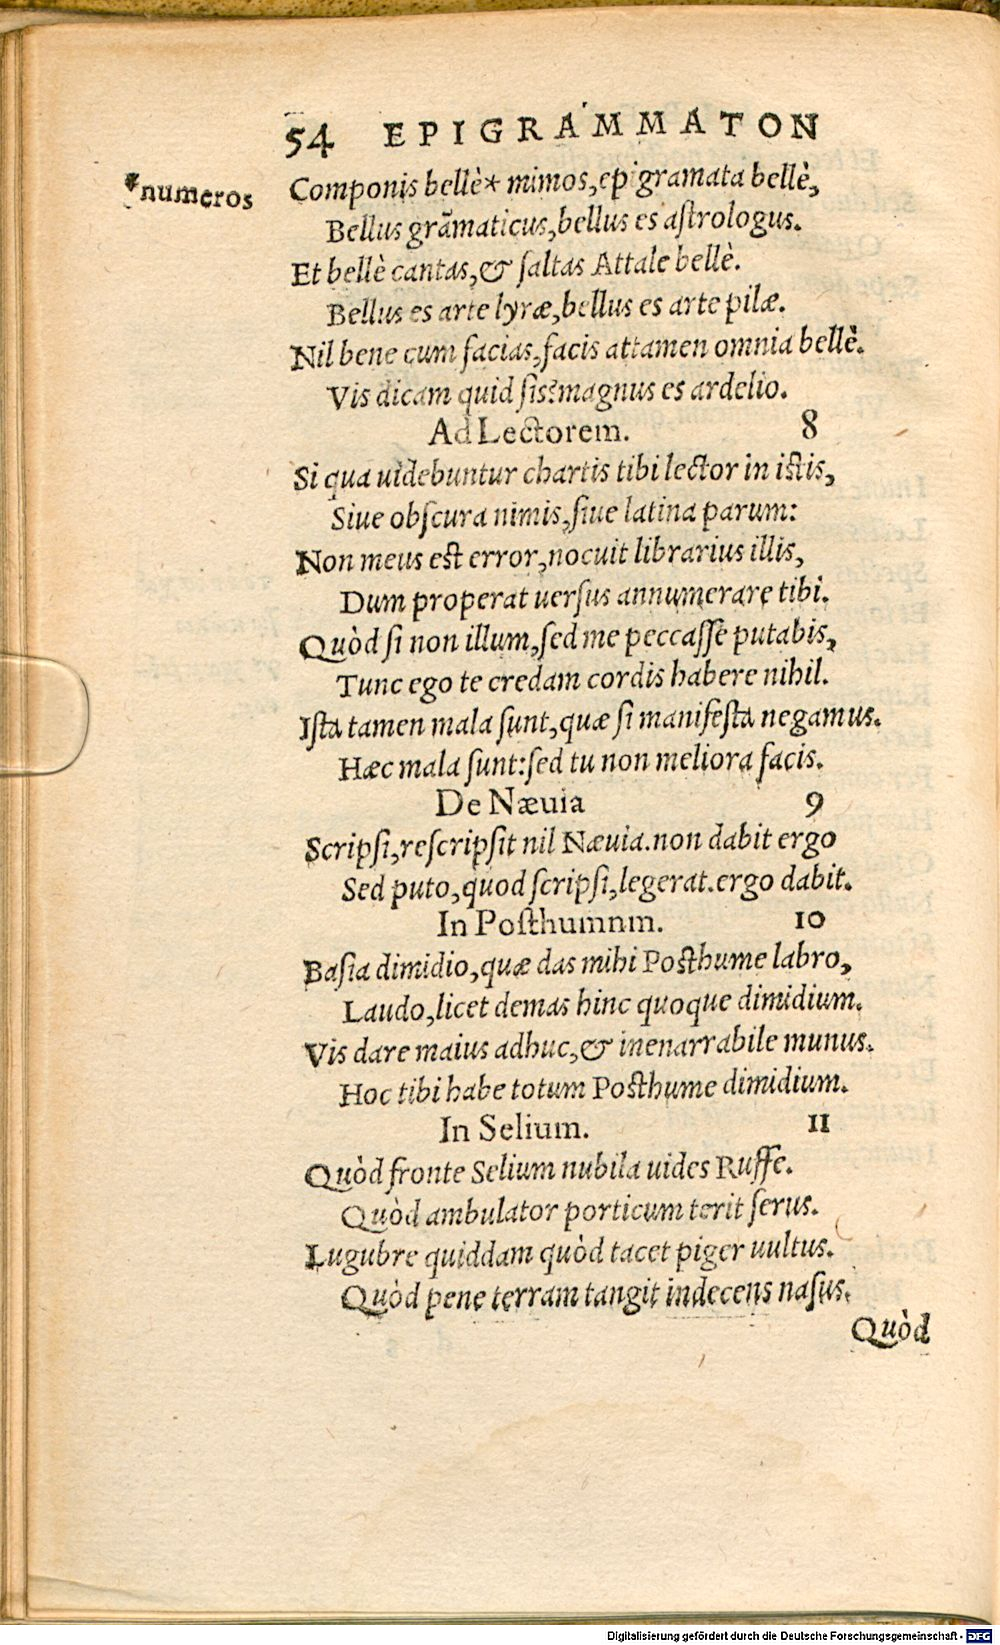 54 EPIGRAMMATON
*numeros
Componis bellè* mimos, epigramata bellè,
Bellus grãmaticus, bellus es astrologus.
Et bellè cantas, & saltas Attale bellè.
Bellus es arte lyræ, bellus es arte pilæ.
Nil bene cum facias, facis attamen omnia bellè.
Vis dicam quid sis? magnus es ardelio.
Ad Lectorem. 8
Si qua uidebuntur chartis tibi lector in istis,
Siue obscura nimis, siue latina parum:
Non meus est error, nocuit librarius illis,
Dum properat uersus annumerare tibi.
Quòd si non illum, sed me peccasse putabis,
Tunc ego te credam cordis habere nihil.
Ista tamen mala sunt, quæ si manifesta negamus.
Hæc mala sunt: sed tu non meliora facis.
De Næuia 9
Scripsi, rescripsit nil Næuia. non dabit ergo
Sed puto, quod scripsi, legerat. ergo dabit.
In Posthumnm. 10
Basia dimidio, quæ das mihi Posthume labro,
Laudo, licet demas hinc quoque dimidium.
Vis dare maius adhuc, & inenarrabile munus.
Hoc tibi habe totum Posthume dimidium.
In Selium. 11
Quòd fronte Selium nubila uides Ruffe.
Quòd ambulator porticum terit serus.
Lugubre quiddam quòd tacet piger uultus.
Quòd pene terram tangit indecens nasus.
Quòd
Digitalisierung gefördert durch die Deutsche Forschungsgemeinschaft - DFG